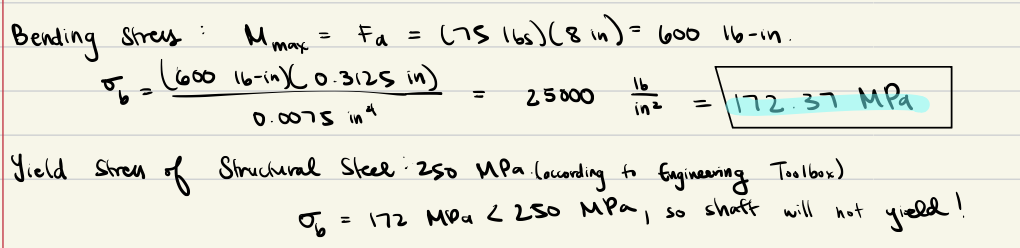 Bending Stress : M_max = Fa = (75 lbs)(8 in) = 600 lb-in.
σ_b = (600 lb-in)(0.3125 in) / 0.0075 in⁴ = 25000 lb/in² = 172.37 MPa
Yield Stress of Structural Steel : 250 MPa. (according to Engineering Toolbox)
σ_b = 172 MPa < 250 MPa, so shaft will not yield!